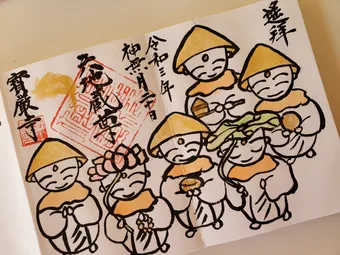 遥拝
令和三年
神無月 日
六地蔵尊
寶厳寺